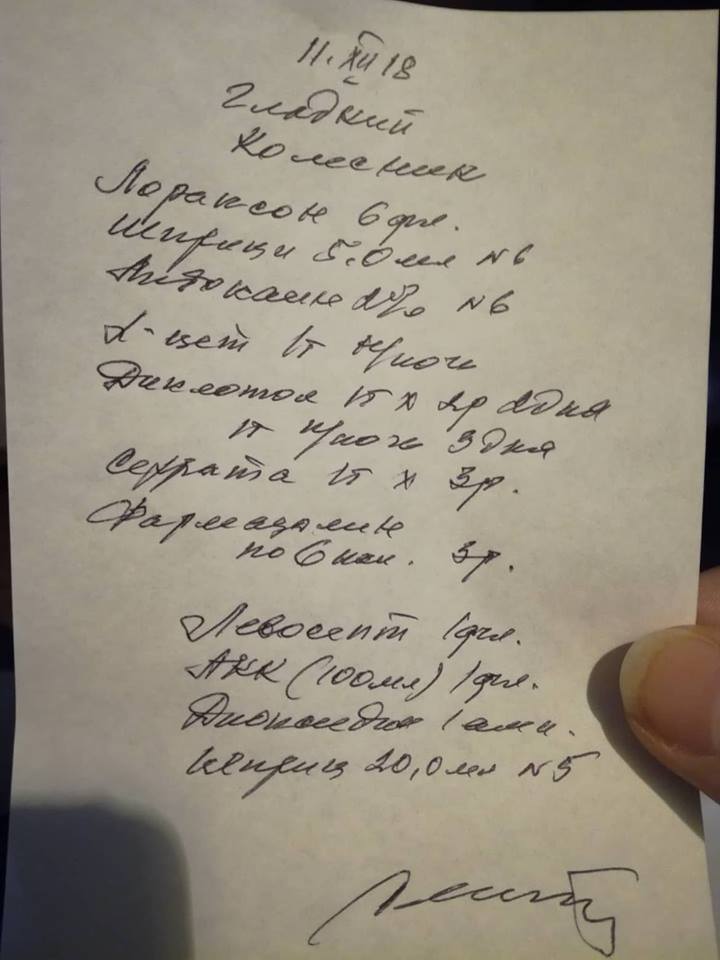 11.XII 18
Гладкий
Колесник
Лораксон 6 фл.
Шприци 5.0 мл №6
Лидокаин 2% №6
L-цет 1т н/ночь
Диклотол 1т х 2р 2 дня
1т н/ночь 3 дня
Серрата 1т х 3р.
Фармадолин
по 6 кап. 3р.
Левосепт 1 фл.
АКК (100мл) 1 фл.
Диоксидин 1 амп.
Шприц 20,0 мл №5